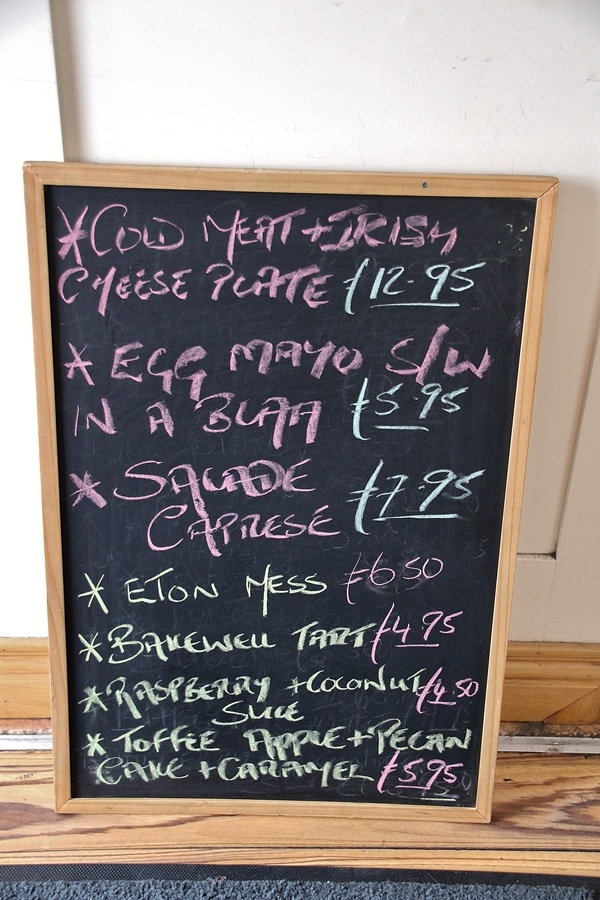 *COLD MEAT + IRISH
CHEESE PLATE £12.95
* EGG MAYO S/W
IN A BLAA £5.95
* SALADE
CAPRESE £7.95
* ETON MESS £6.50
* BAKEWELL TART £4.95
* RASPBERRY + COCONUT £4.50
SLICE
* TOFFEE APPLE + PECAN
CAKE + CARAMEL £5.95